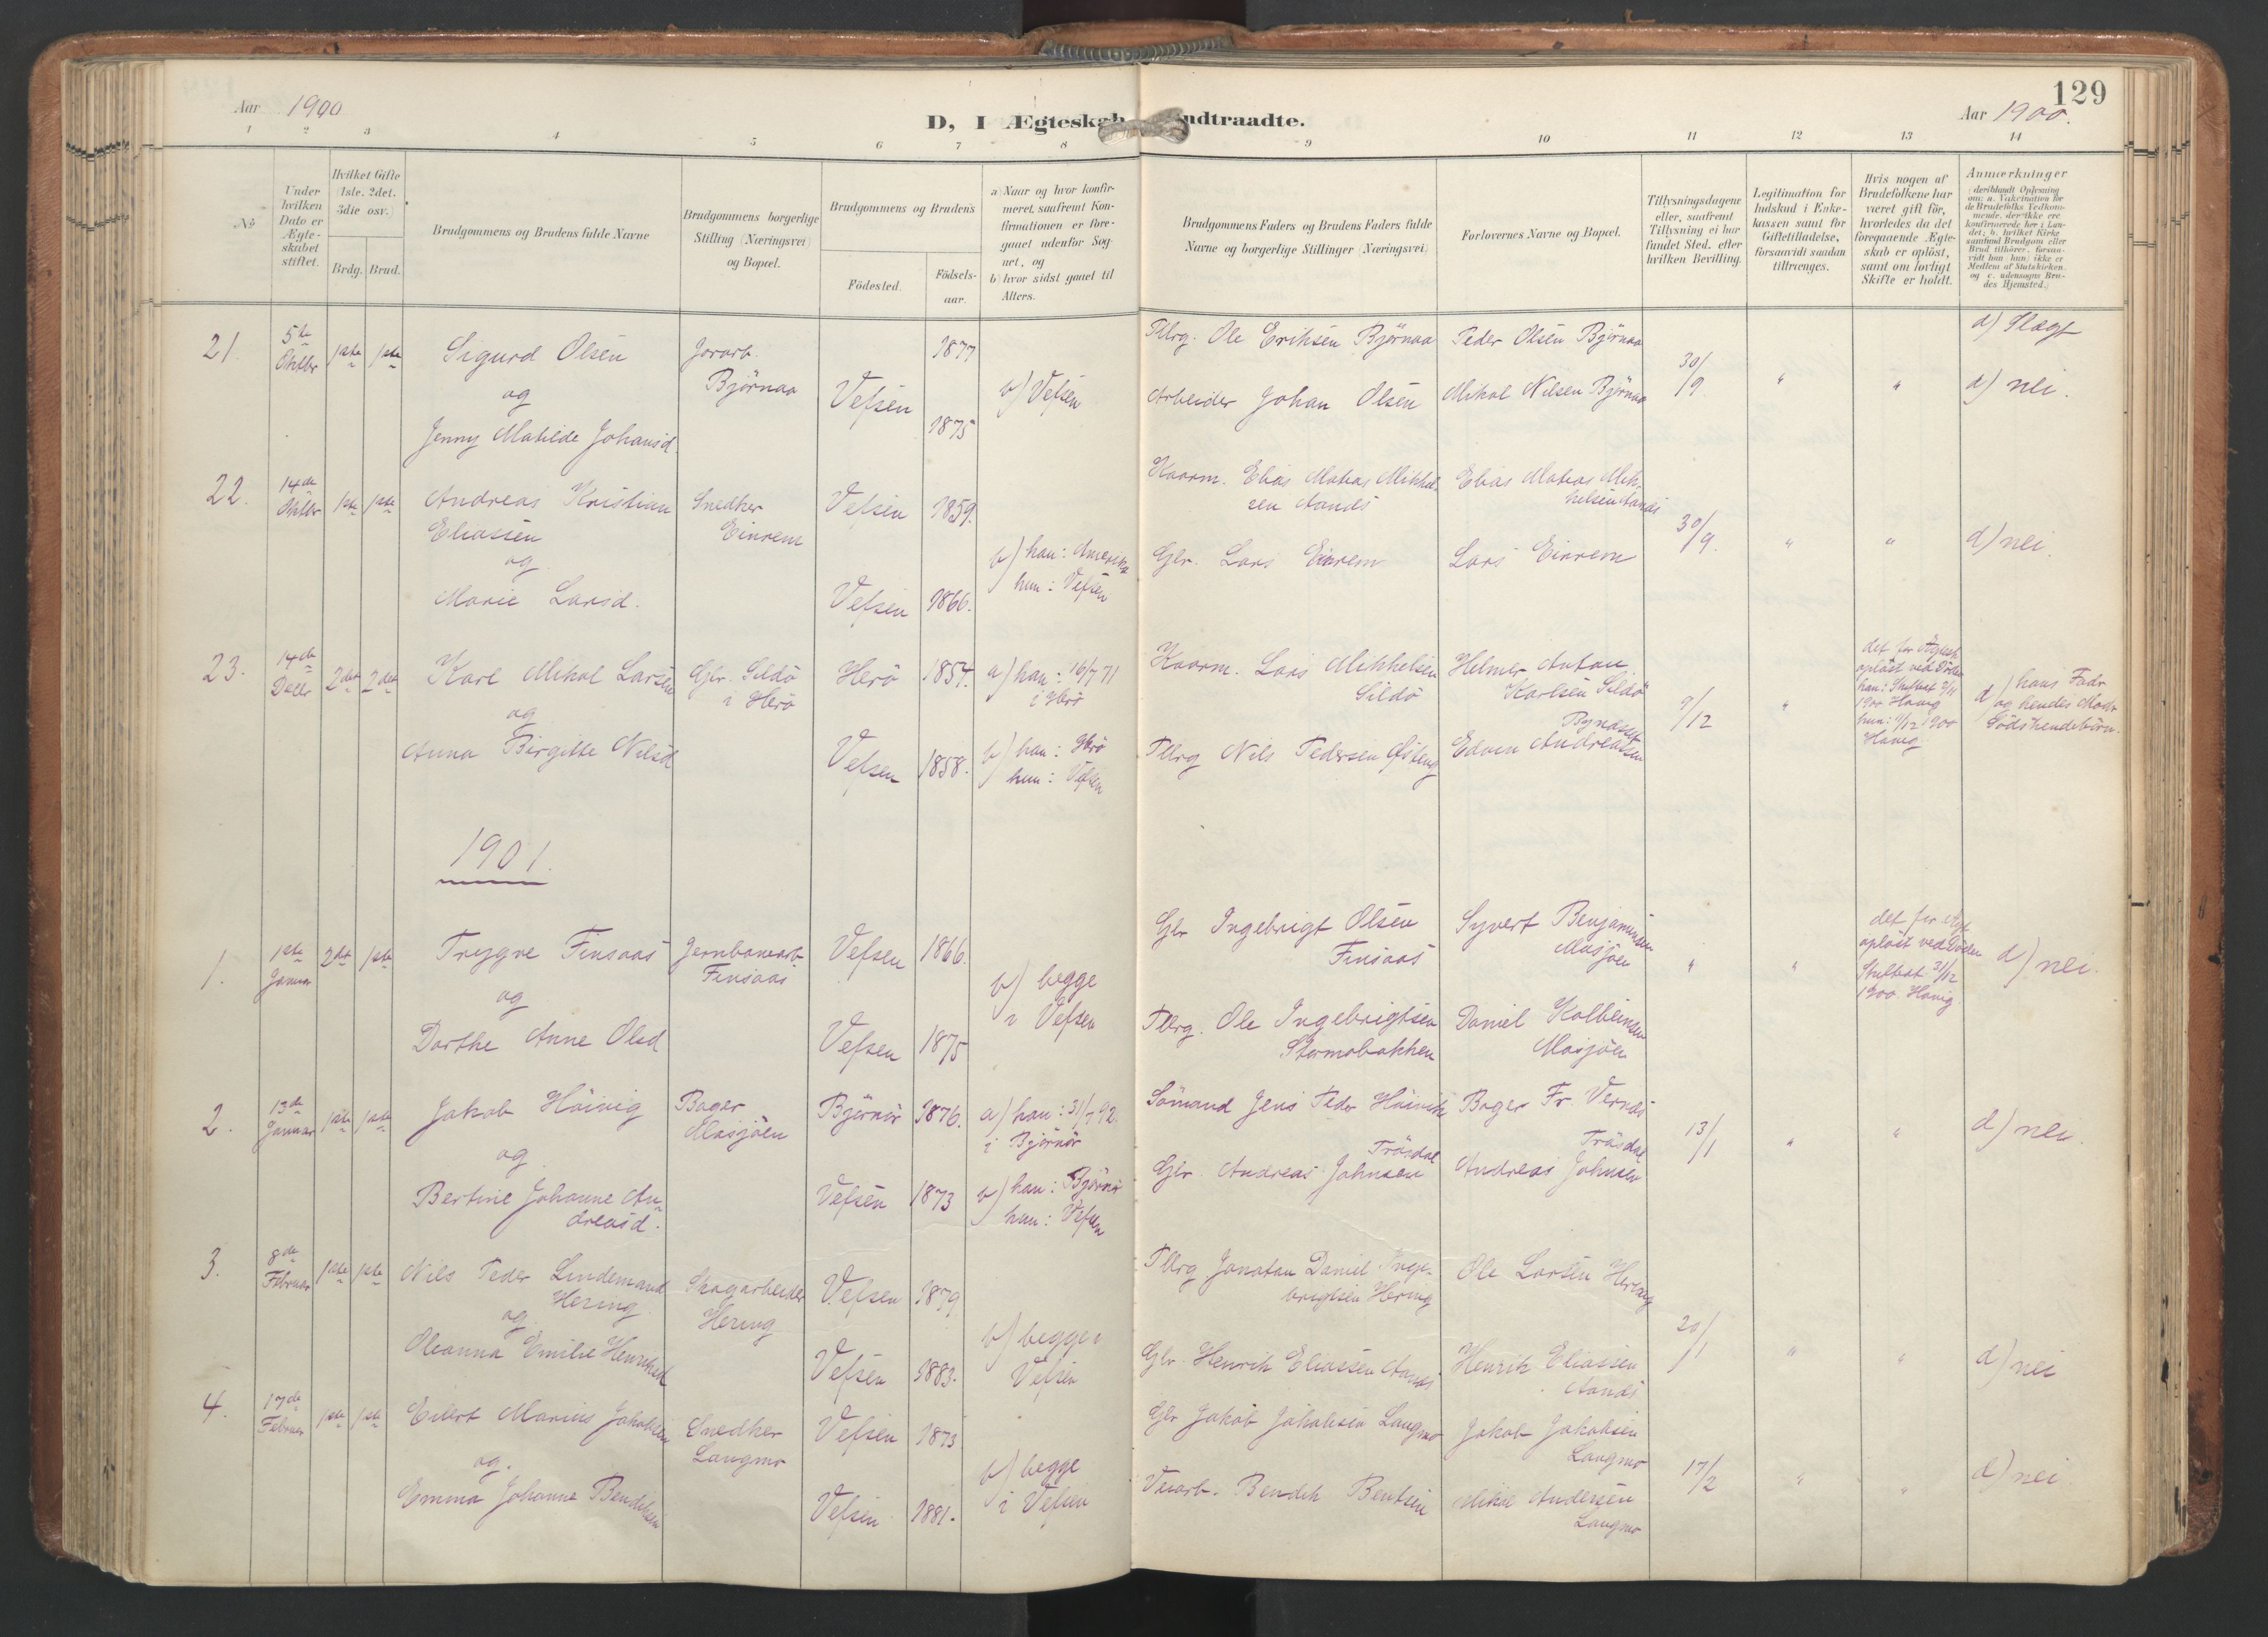 129
Aar 1900
D, I Ægteskab Indtraadte.
Aar 1900.
1 2 3 4 5 6 7 8 9 10 11 12 13 14
No
Under hvilken Dato er Ægteskabet stiftet.
Hvilket Gifte (1ste. 2det. 3die osv.)
Brdg. Brud.
Brudgommens og Brudens fulde Navne
Brudgommens borgerlige Stilling (Næringsvei) og Bopæl.
Brudgommens og Brudens
Födested.
Födselsaar.
a) Naar og hvor konfirmeret, saafremt Konfirmationen er foregaaet udenfor Sognet, og
b) hvor sidst gaaet til Alters.
Brudgommens Faders og Brudens Faders fulde Navne og borgerlige Stillinger (Næringsvei)
Forlovernes Navne og Bopæl.
Tillysningsdagene eller, saafremt Tillysning ei har fundet Sted, efter hvilken Bevilling.
Legitimation for Indskud i Enkekassen samt for Giftetilladelse, forsaavidt saadan tiltrænges.
Hvis nogen af Brudefolkene har været gift för, hvorledes da det foregaaende Ægteskab er oplöst, samt om lovligt Skifte er holdt.
Anmærkninger
21. 5te Oktbr 1ste 1ste
Sigurd Olsen
og
Jenny Matilde Johansd.
Björnaa
Vefsen
1877
1875
b) Vefsen
Ole Eriksen Björnaa
Arbeider Johan Olsen
Peder Olsen Björnaa
Mikal Nilsen Björnaa
30/9 " "
d) nei.
22. 14de Oktbr 1ste 1ste
Andreas Kristian
Eliassen
og
Marie Larsd.
Snedker
Einrem
Vefsen 1859.
Vefsen 1866.
b) han: Amerika
hun: Vefsen
Kaarm. Elias Matias Mikkelsen Aands
Gbr. Lars Einrem
Elias Matias Mikkelsen Aands
Lars Einrem
30/9. " "
d) nei.
23. 14de Decbr 2det 2det
Karl Mikal Larsen
og
Anna Birgitte Nilsd
Gbr. Sildö
i Herö
Herö 1854.
Vefsen 1858.
a) han: 16/7 71
i Herö
b) han: Herö
hun: Vefsen
Kaarm. Lars Mikkelsen
Sildö
Nils Pedersen
Helmer Anton
Karlsen Sildö
Edvin Andreassen
9/12 "
det for. Ægtesk.
oplöst ved Döden
han: Skifteat 9/11
1900 Havig
hun: 9/12 1900
Havig
d) hans Fader
og hendes Moder
Södskendebörn.
1901.
1. 1ste Januar 2det 1ste
Trygve Finsaas
og
Dorthe Anne Olsd
Jernbanearb.
Finsaas
Vefsen 1866.
Vefsen 1875
b) begge
i Vefsen
Gbr Ingebrigt Olsen
Finsaas
Ole Ingebrigtsen
Stormobakken
Syvert Benjaminsen
Mosjöen
Daniel Kolbeinsen
Mosjöen
" "
det for. Ægt.
oplöst ved Döden
Skifteat 31/12
1900 Havig.
d) nei.
2. 13de Januar 1ste 1ste
Jakob Höivig
og
Bertine Johanne Andreasd.
Bager
Mosjöen
Björnör 1876.
Vefsen 1873
a) han: 31/7 92.
i Björnör
b) han: Björnör
hun: Vefsen
Sömand Jens Peder Höivik
Gbr. Andreas Johnsen Träsdal
Bager Fr Vernes
Andreas Johnsen Träsdal
13/1 " "
d) nei.
3. 8de Februar 1ste 1ste
Nils Peder Lindemand
Hering
og
Oleanna Emilie Henriksd
Skogarbeider
Hering
Vefsen 1879
Vefsen 1883.
b) begge i
Vefsen
Jonatan Daniel Ingebrigtsen Hering
Gbr. Henrik Eliassen Aands
Ole Larsen Hering
Henrik Eliassen
Aands
20/1 " "
d) nei
4. 17de Februar 1ste 1ste
Eilert Marius Jakobsen
og.
Emma Johanne Bendiksen
Snedker
Langmo
Vefsen 1873
Vefsen 1881.
b) begge
i Vefsen
Gbr Jakob Jakobsen Langmo
Bendik Bentsen
Jakob Jakobsen
Langmo
Mikal Andersen
Langmo
17/2 " "
d) nei